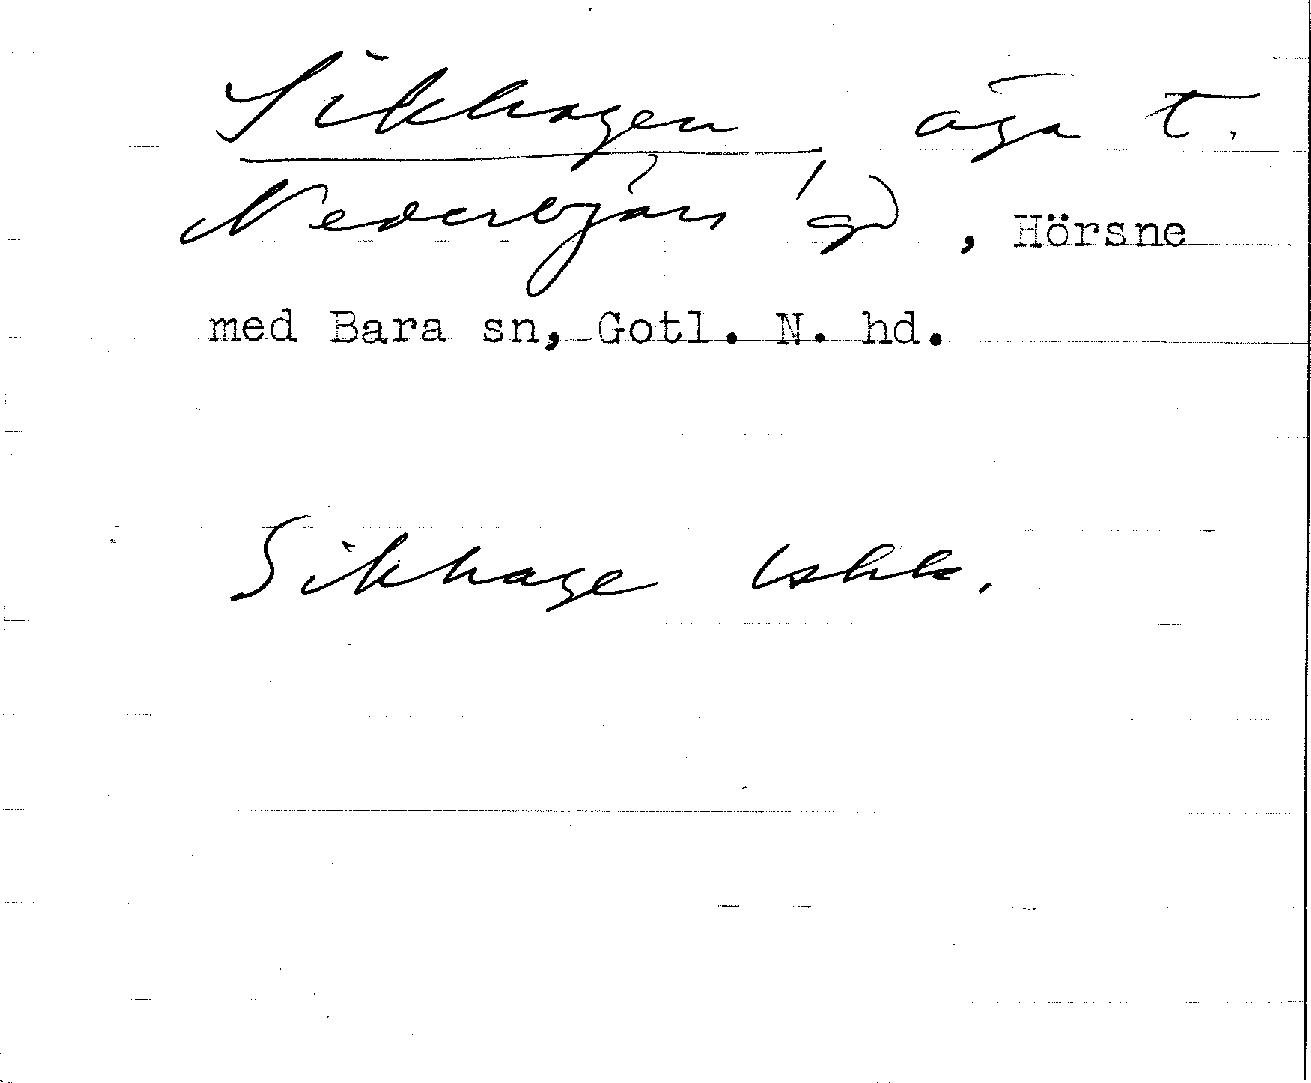 Sikhagen, äga t.
Nederbjärs gd, Hörsne
med Bara sn, Gotl. N. hd.
Sikhage